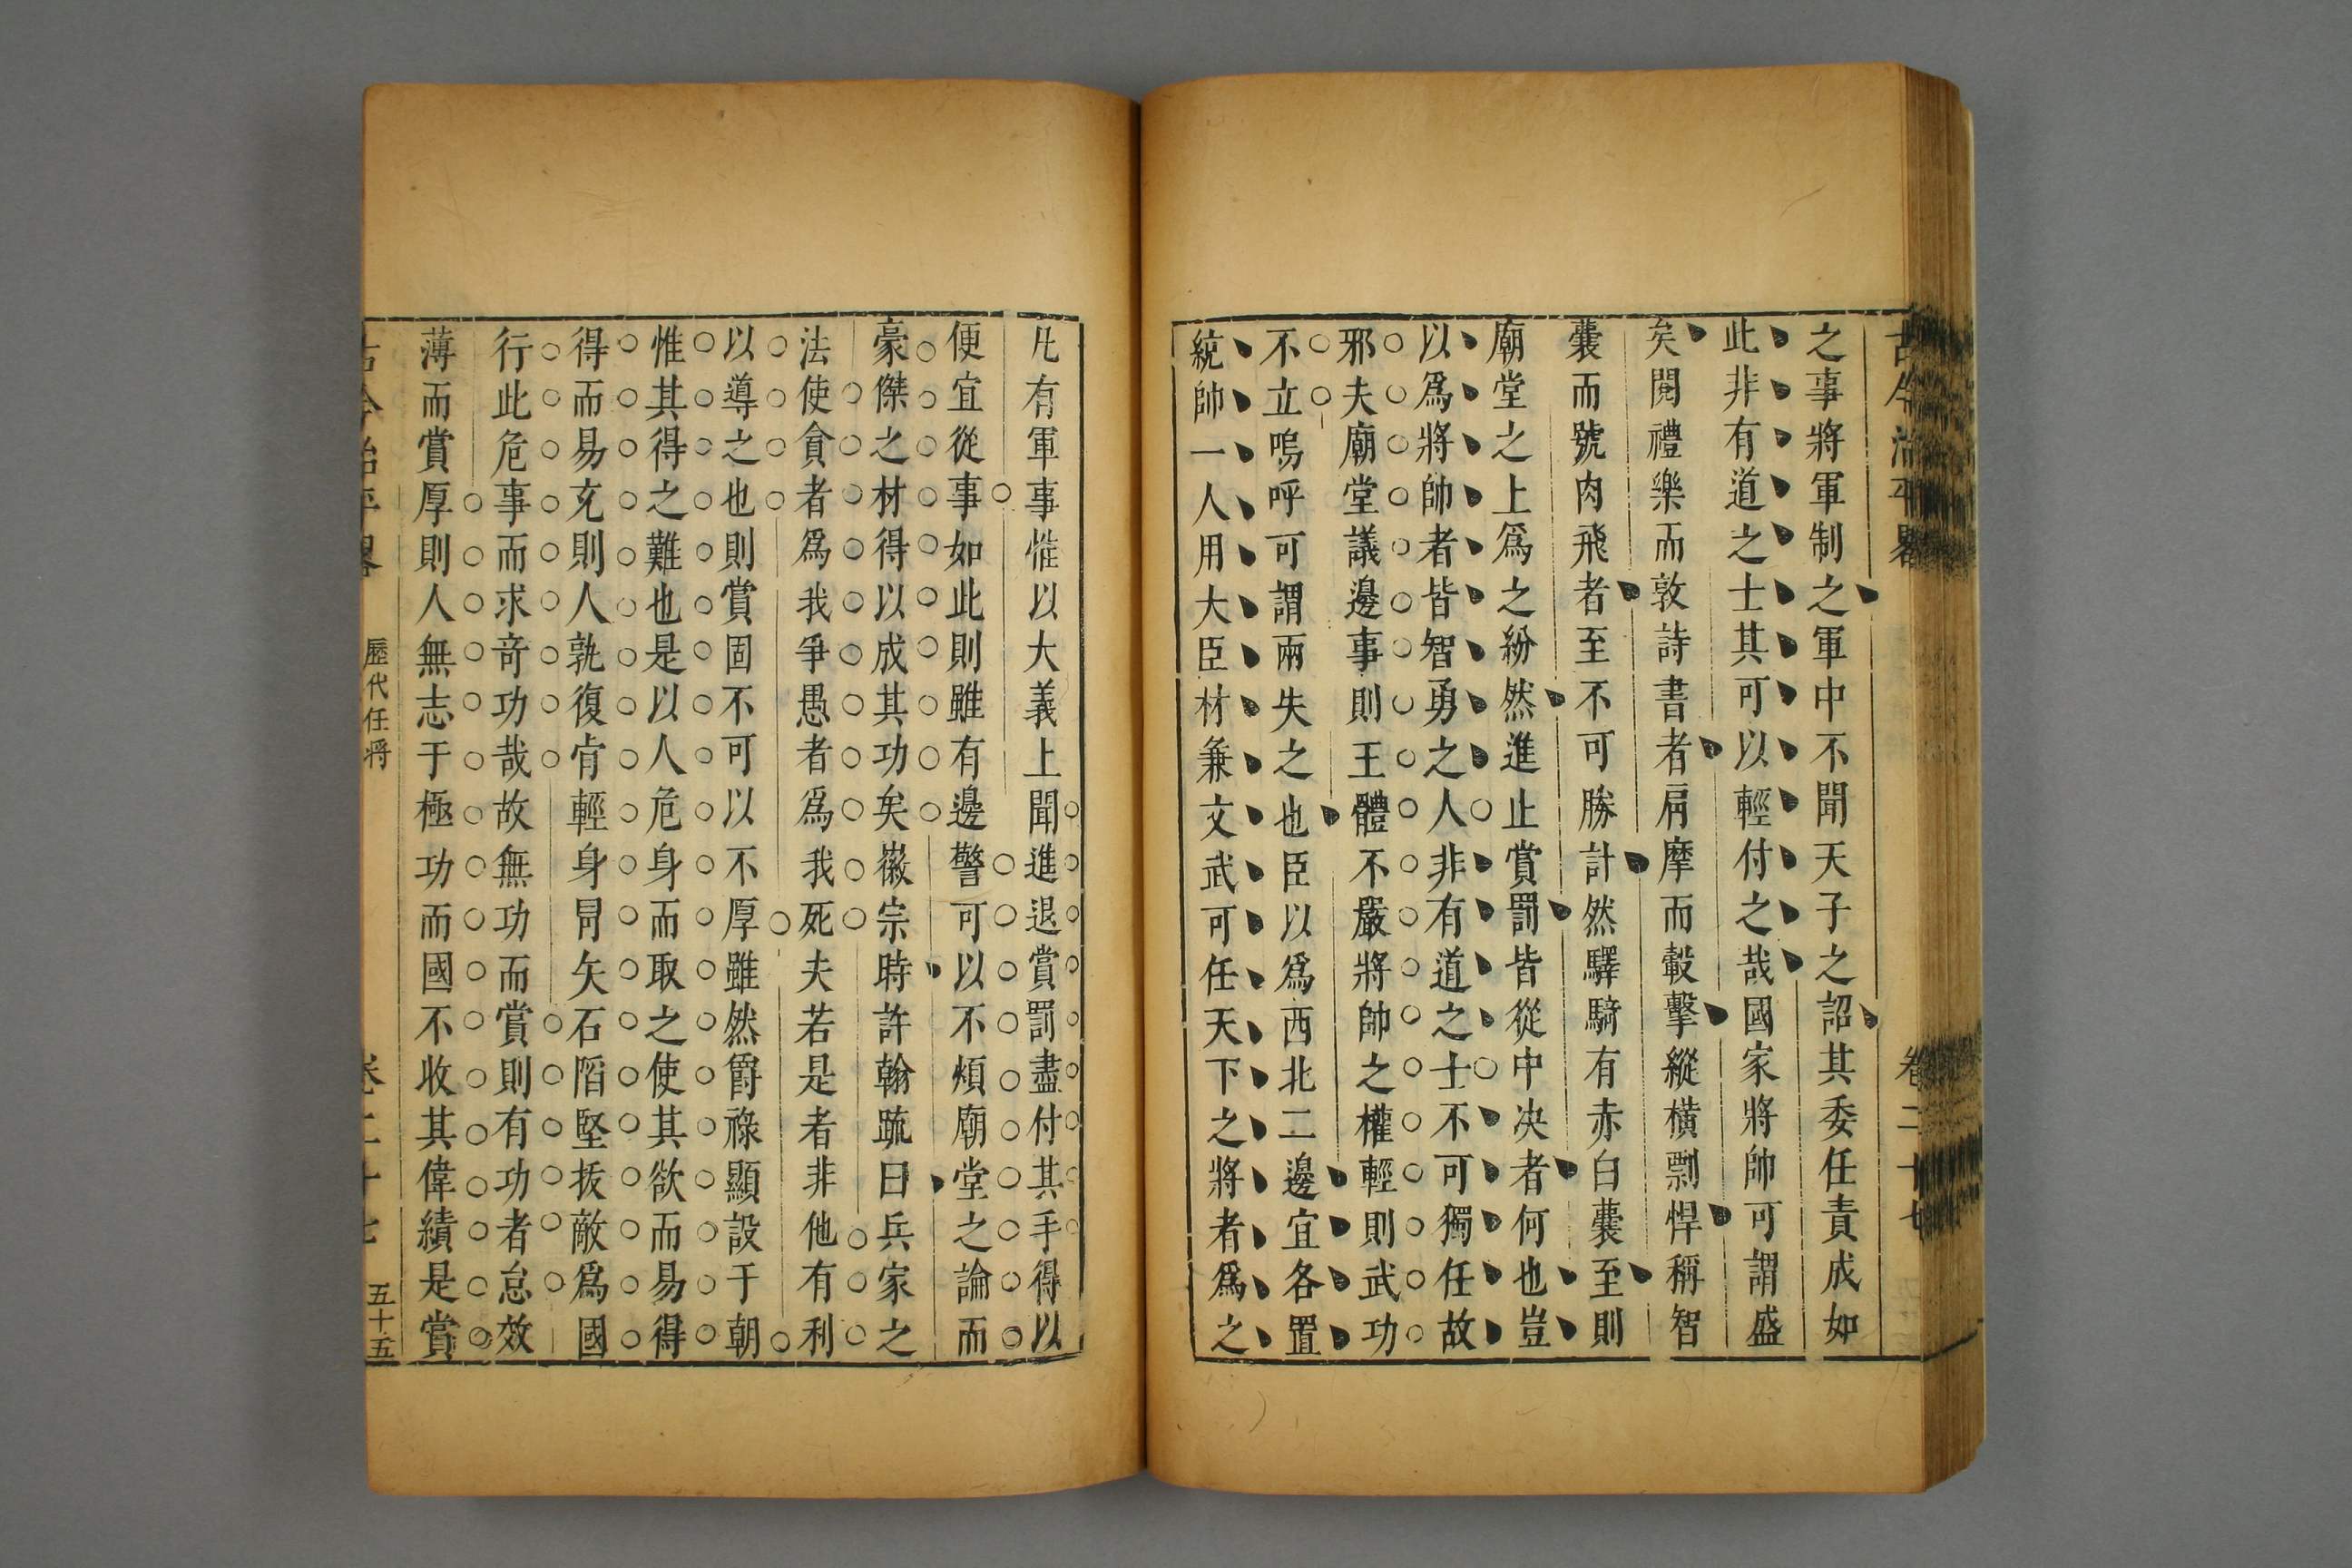 古今治平畧 卷二十七
之事將軍制之軍中不聞天子之詔其委任責成如
此非有道之士其可以輕付之哉國家將帥可謂盛
矣閱禮樂而敦詩書者肩摩而轂擊縱橫剽悍稱智
囊而號肉飛者至不可勝計然驛騎有赤白囊至則
廟堂之上爲之紛然進止賞罰皆從中决者何也豈
以爲將帥者皆智勇之人非有道之士不可獨任故
邪夫廟堂議邊事則王體不嚴將帥之權輕則武功
不立嗚呼可謂兩失之也臣以爲西北二邊宜各置
統帥一人用大臣材兼文武可任天下之將者爲之
凡有軍事惟以大義上聞進退賞罰盡付其手得以
便宜從事如此則雖有邊警可以不煩廟堂之論而
豪傑之材得以成其功矣徽宗時許翰疏曰兵家之
法使貪者爲我爭愚者爲我死夫若是者非他有利
以導之也則賞固不可以不厚雖然爵祿顯設于朝
惟其得之難也是以人危身而取之使其欲而易得
得而易充則人孰復肯輕身冐矢石陷堅拔敵爲國
行此危事而求奇功哉故無功而賞則有功者怠效
薄而賞厚則人無志于極功而國不收其偉績是賞
古今治平畧 歷代任將 卷二十七 五十五